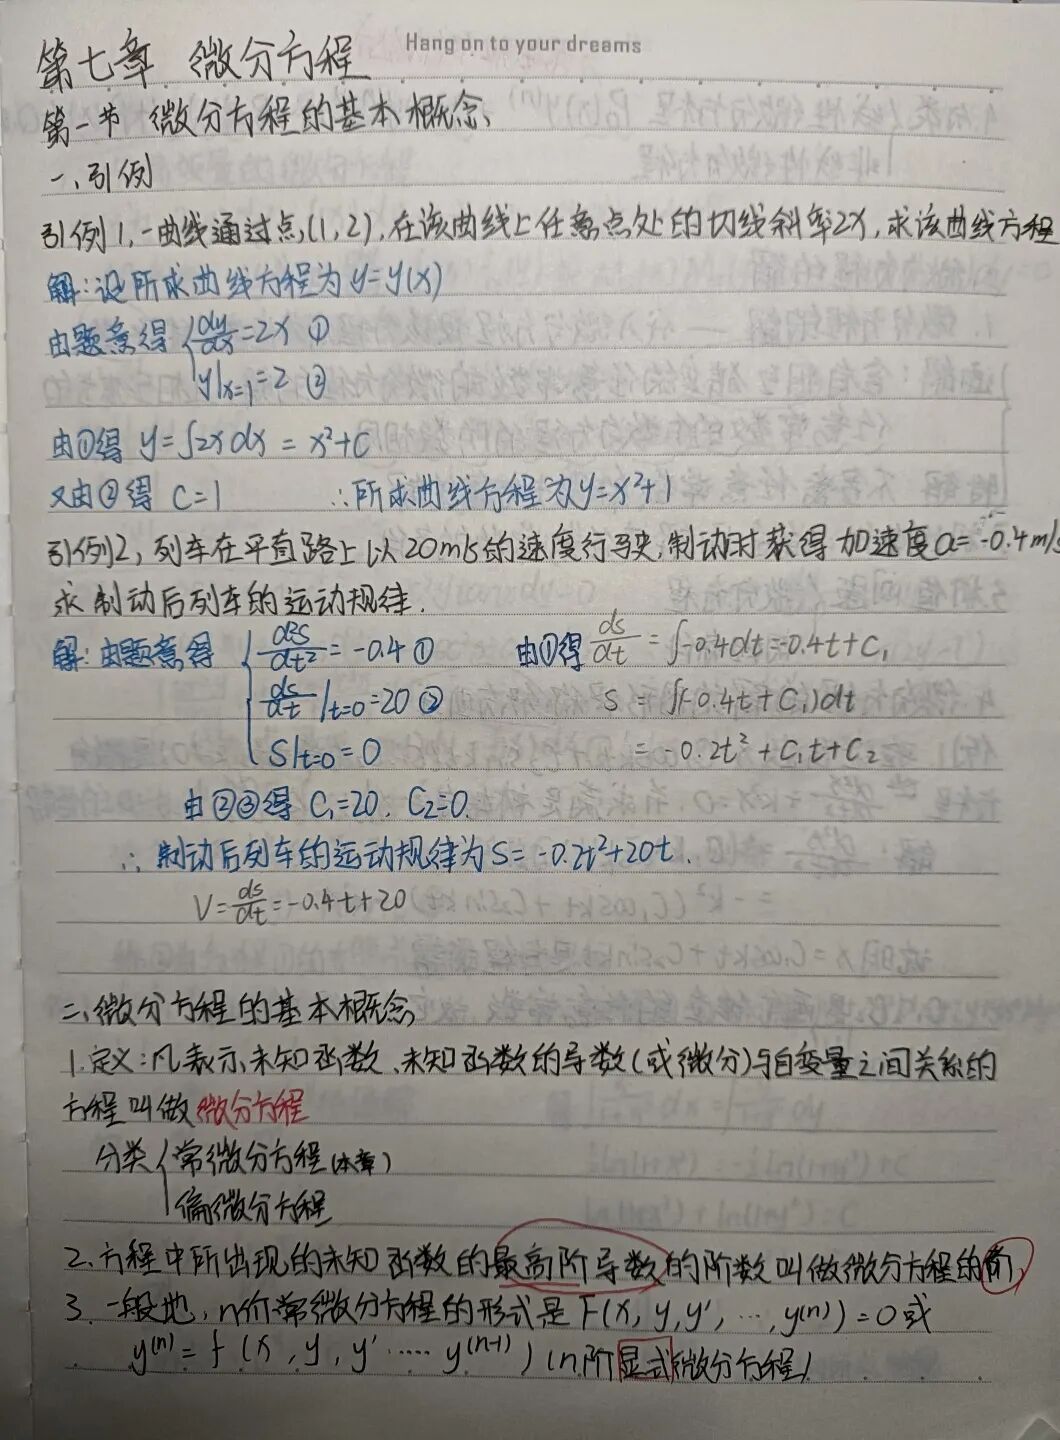 Hang on to your dreams
第七章 微分方程
第一节 微分方程的基本概念
一、引例
引例1,一曲线通过点(1,2),在该曲线上任意点处的切线斜率2x,求该曲线方程
解:设所求曲线方程为y=y(x)
由题意得 { dy/dx=2x ①
y|x=1=2 ②
由①得 y=∫2xdx = x²+C
又由②得 C=1 ∴所求曲线方程为y=x²+1
引例2,列车在平直路上以20m/s的速度行驶,制动时获得加速度a=-0.4m/s
求制动后列车的运动规律.
解:由题意得 { d²s/dt²=-0.4 ① 由①得 ds/dt=∫-0.4dt=-0.4t+C₁
ds/dt|t=0=20 ② S=∫(-0.4t+C₁)dt
S|t=0=0 =-0.2t²+C₁t+C₂
由②③得 C₁=20, C₂=0.
∴ 制动后列车的运动规律为S=-0.2t²+20t.
V=ds/dt=-0.4t+20
二、微分方程的基本概念
1.定义:凡表示未知函数、未知函数的导数(或微分)与自变量之间关系的
方程叫做微分方程
分类 { 常微分方程(本章)
偏微分方程
2.方程中所出现的未知函数的最高阶导数的阶数叫做微分方程的阶,
3.一般地,n阶常微分方程的形式是F(x,y,y',…,y⁽ⁿ⁾)=0或
y⁽ⁿ⁾=f(x,y,y'……y⁽ⁿ⁻¹⁾) (n阶显式微分方程)